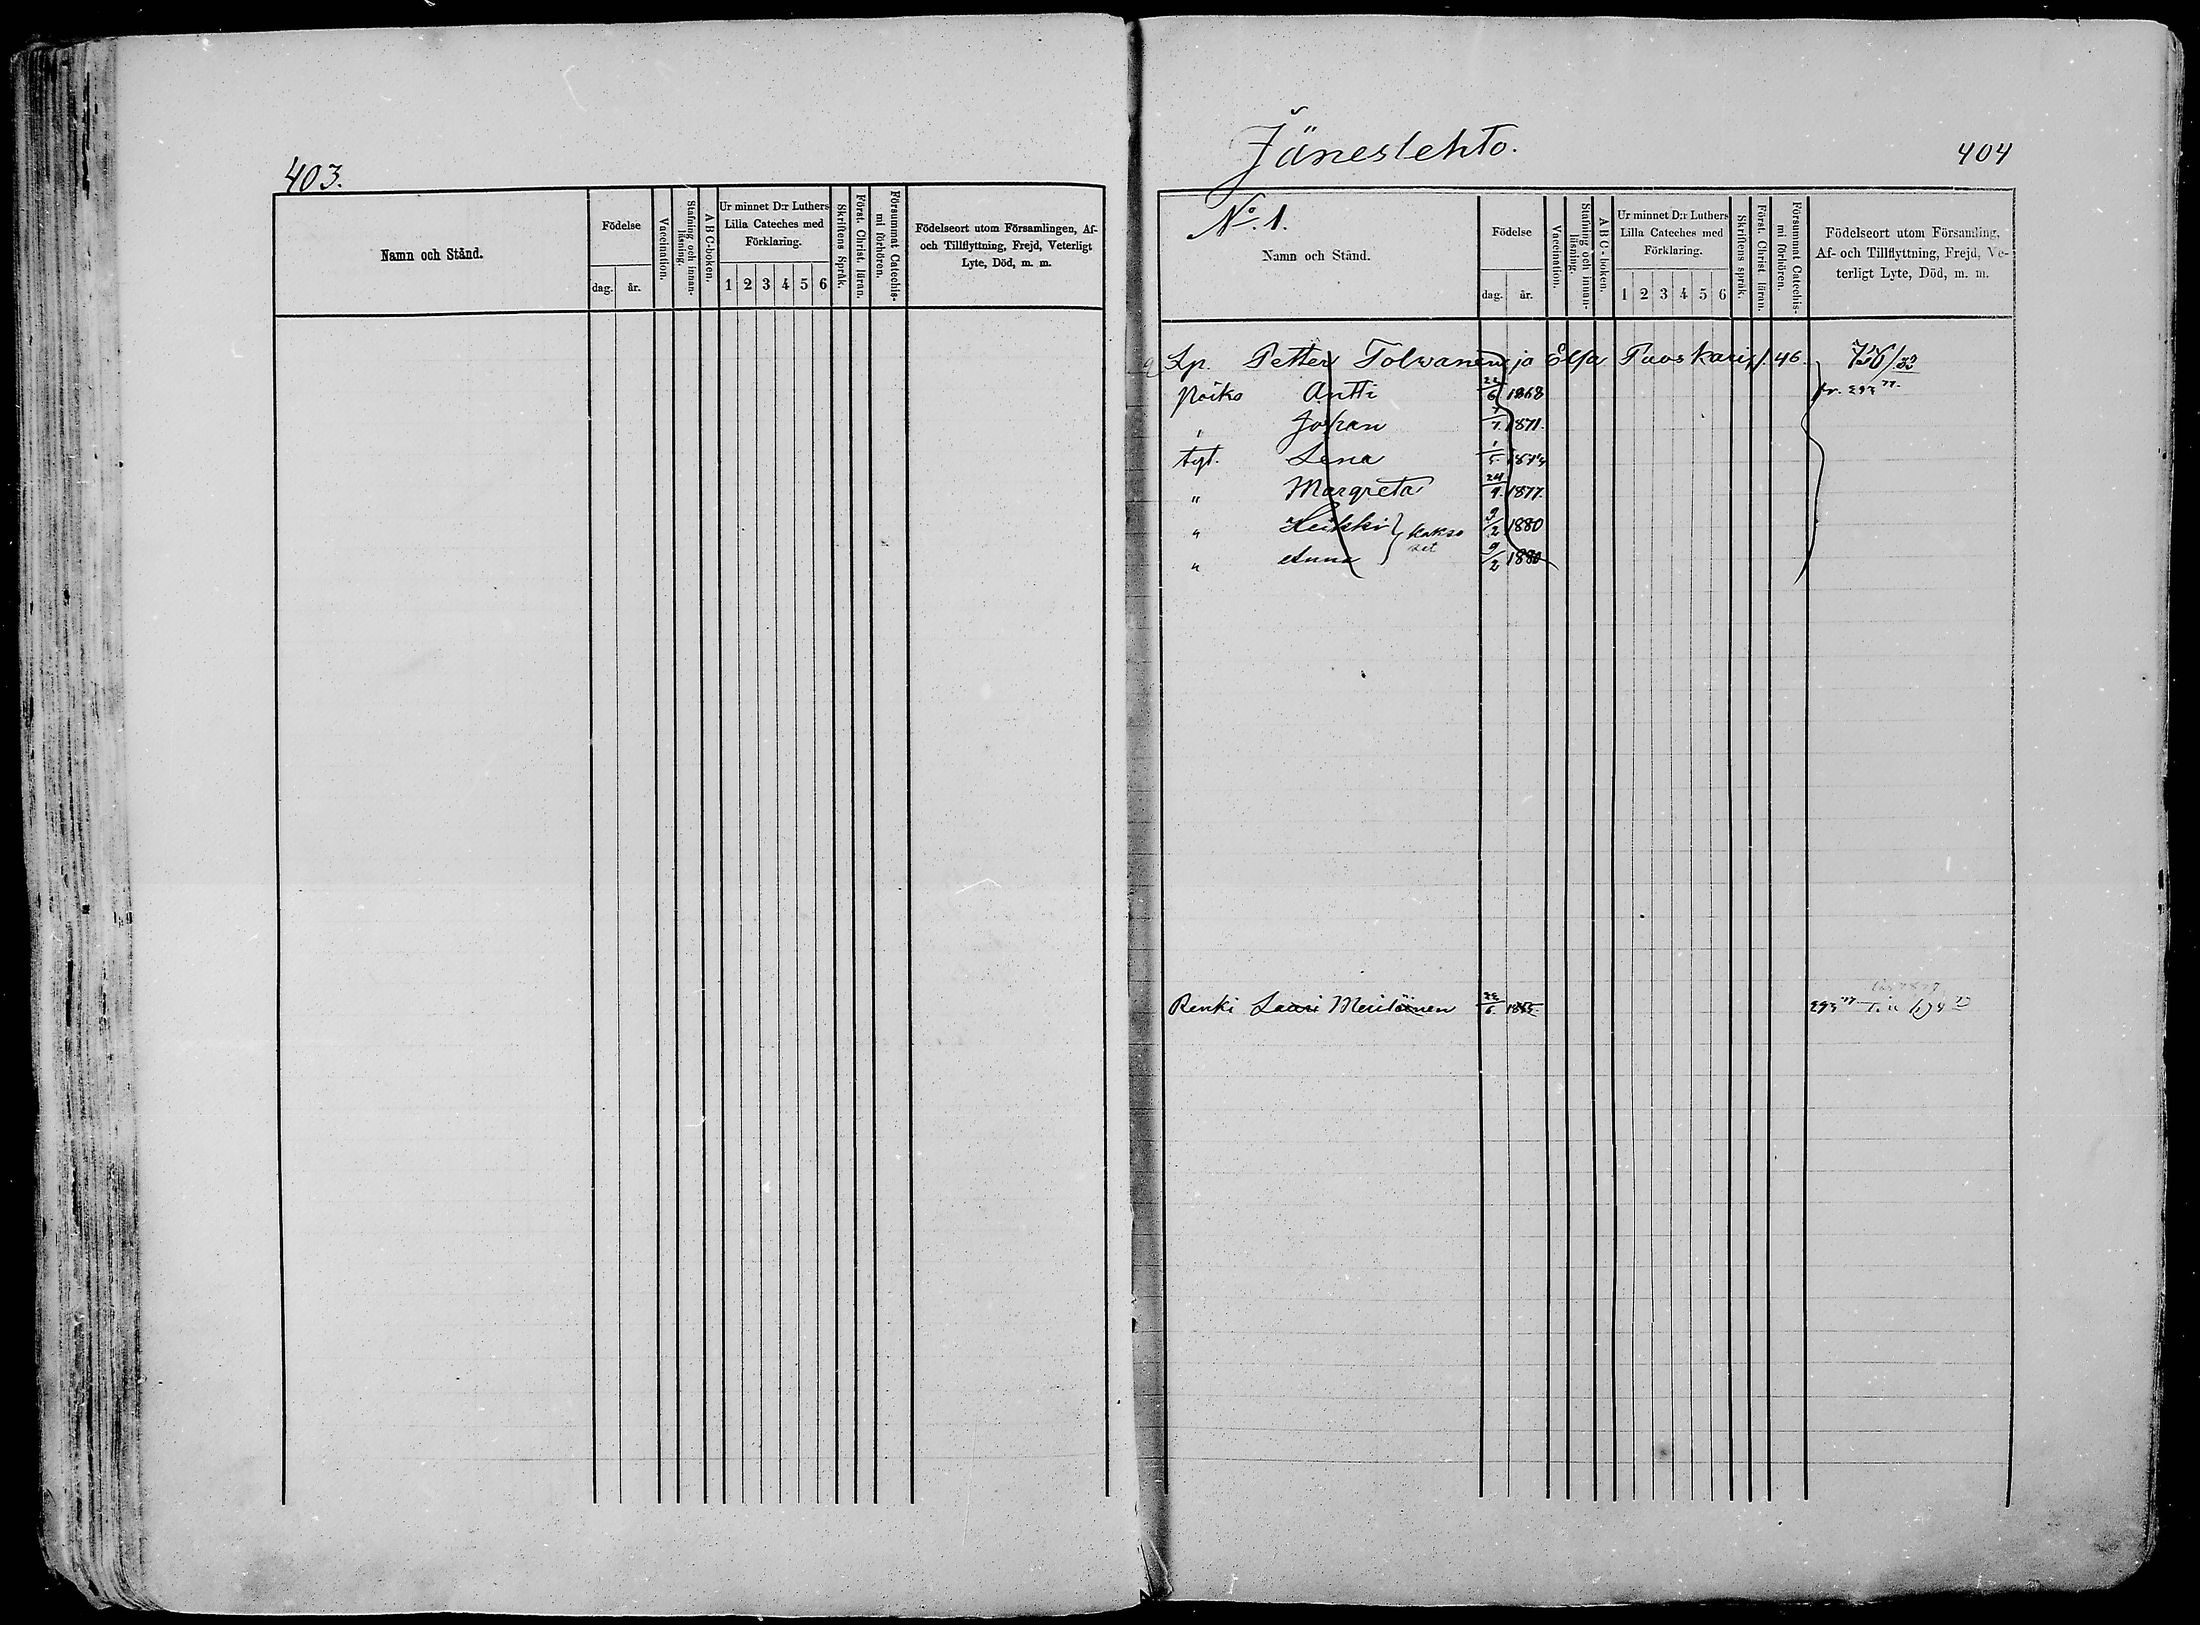 403.
Namn och Stånd.
Födelse
dag. år.
Vaccination.
Stafning och innan-
läsning.
ABC-boken.
Ur minnet D:r Luthers
Lilla Cateches med
Förklaring.
1 2 3 4 5 6
Skriftens Språk.
Först. Christ. läran.
Försummat Catechis-
mi förhören.
Födelseort utom Församlingen, Af-
och Tillflyttning, Frejd, Veterligt
Lyte, Död, m. m.
Jäneslehto.
404
No. 1.
Namn och Stånd.
Födelse
dag. år.
Vaccination.
Stafning och innan-
läsning.
ABC-boken.
Ur minnet D:r Luthers
Lilla Cateches med
Förklaring.
1 2 3 4 5 6
Skriftens språk.
Först. Christ läran.
Försummat Catechis-
mi förhören.
Födelseort utom Församling,
Af- och Tillflyttning, Frejd, Ve-
terligt Lyte, Död, m. m.
Lp. Petter Tolwanen ja Elsa Puoskari
Poika Antti 22/6 1868 fr. 293 77.
" Johan 1871.
tyt. Lena
" Margreta 24/9. 1877.
" Heikki } kakso 9/2 1880
set
" Anna 9/2 1880
Renki Lauri Meriläinen 293 77